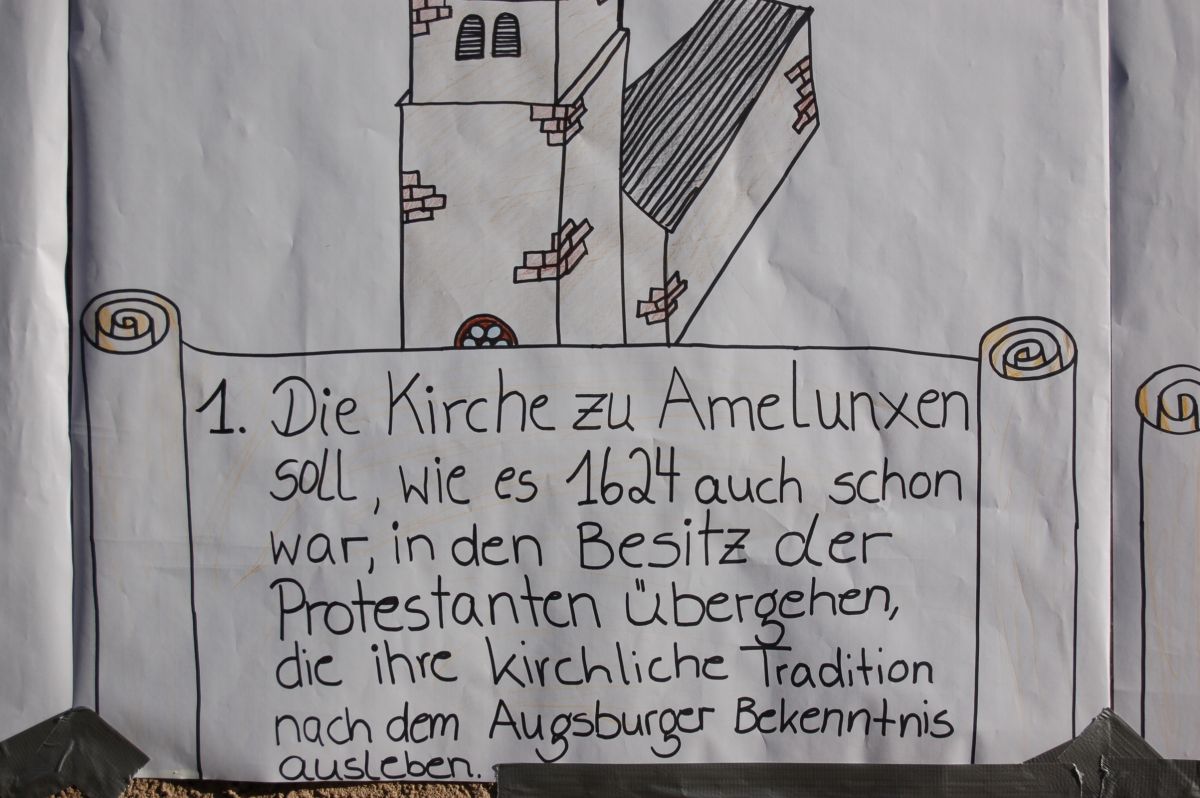 1. Die Kirche zu Amelunxen
soll, wie es 1624 auch schon
war, in den Besitz der
Protestanten übergehen,
die ihre kirchliche Tradition
nach dem Augsburger Bekenntnis
ausleben.